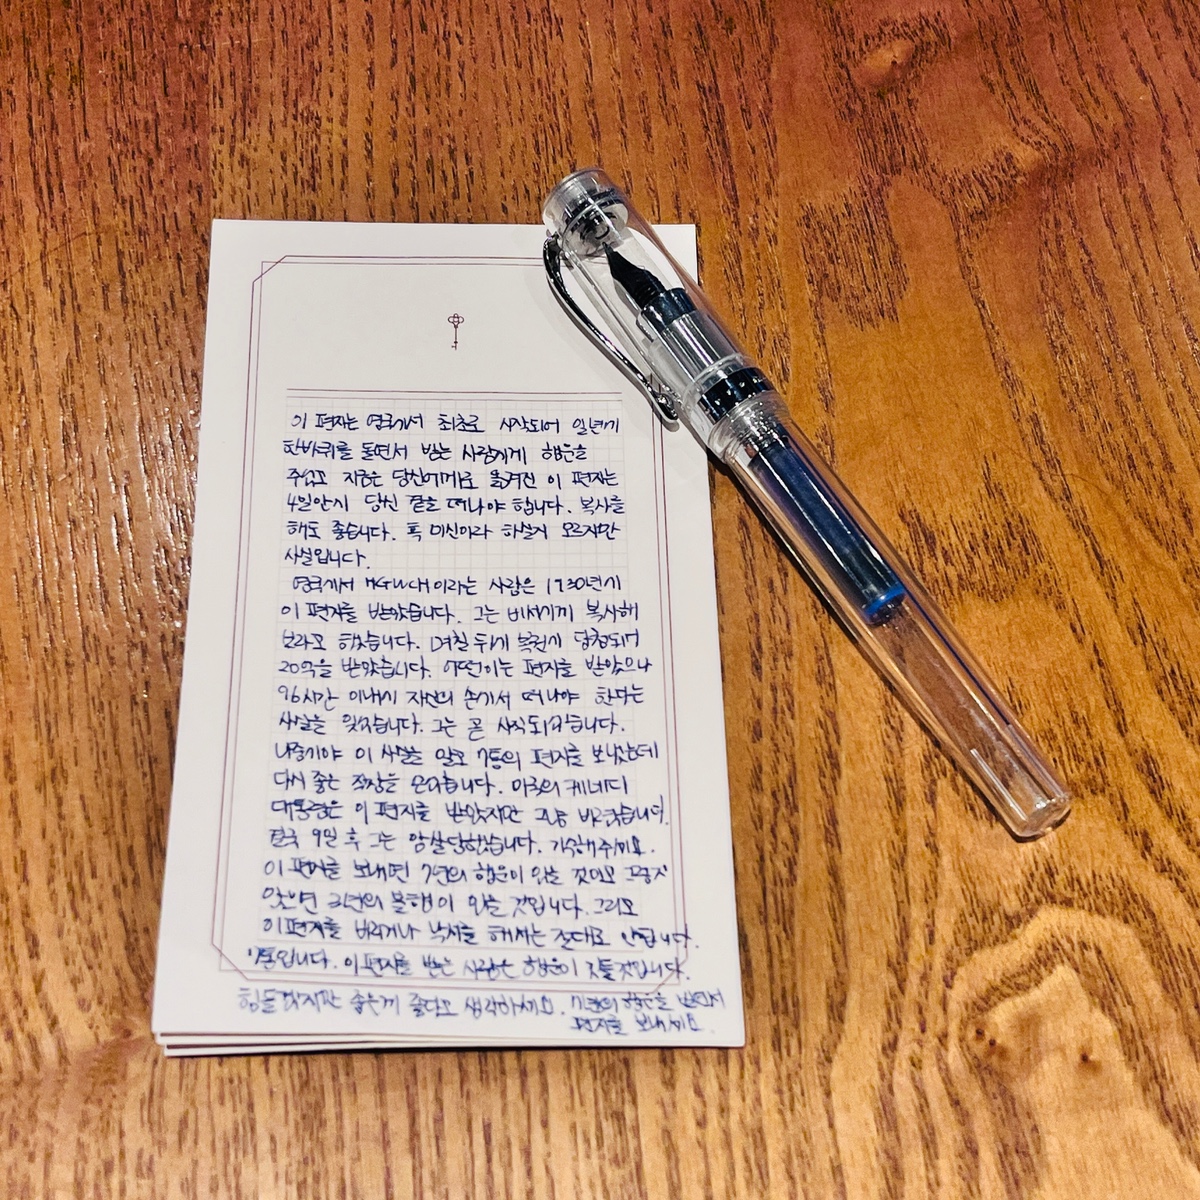 이 편지는 영국에서 최초로 시작되어 일년에
한바퀴를 돌면서 받는 사람에게 행운을
주었고 지금은 당신에게로 옮겨진 이 편지는
4일안에 당신 곁을 떠나야 합니다. 복사를
해도 좋습니다. 혹 미신이라 하실지 모르지만
사실입니다.
영국에서 HGWCH이라는 사람은 1930년에
이 편지를 받았습니다. 그는 비서에게 복사해
보라고 했습니다. 며칠 뒤에 복권이 당첨되어
20억을 받았습니다. 어떤이는 편지를 받았으나
96시간 이내에 자신의 손에서 떠나야 한다는
사실을 잊었습니다. 그는 곧 사직되었습니다.
나중에야 이 사실을 알고 7통의 편지를 보냈는데
다시 좋은 직장을 얻었습니다. 미국의 케네디
대통령은 이 편지를 받았지만 그냥 버렸습니다.
결국 9일 후 그는 암살당했습니다. 기억해주세요.
이 편지를 보내면 7년의 행운이 있을 것이고 그렇지
않으면 3년의 불행이 있을 것입니다. 그리고
이 편지를 버리거나 낙서를 해서는 절대로 안됩니다.
7통입니다. 이 편지를 받는 사람은 행운이 깃들것입니다.
힘들겠지만 좋은게 좋다고 생각하세요. 7년의 행운을 빌면서
편지를 보내세요.